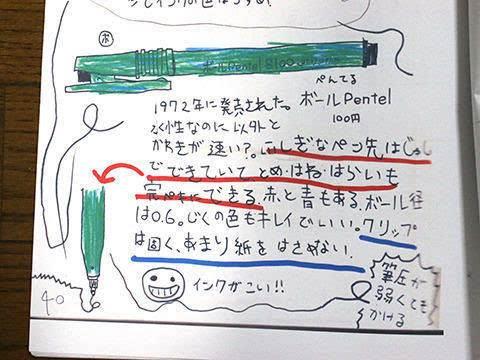 ボ
ボールPentel B100
ぺんてる
ボールPentel
100円
1972年に発売された。
水性なのに以外と
かわきが速い?。ふしぎなペン先はじゅし
でできていてとめ・はね・はらいも
完ペキにできる。赤と青もある。ボール径
は0.6。じくの色もキレイでいい。クリップ
は固く、あまり紙をはさめない。
インクがこい!!
筆圧が
弱くても
かける
40